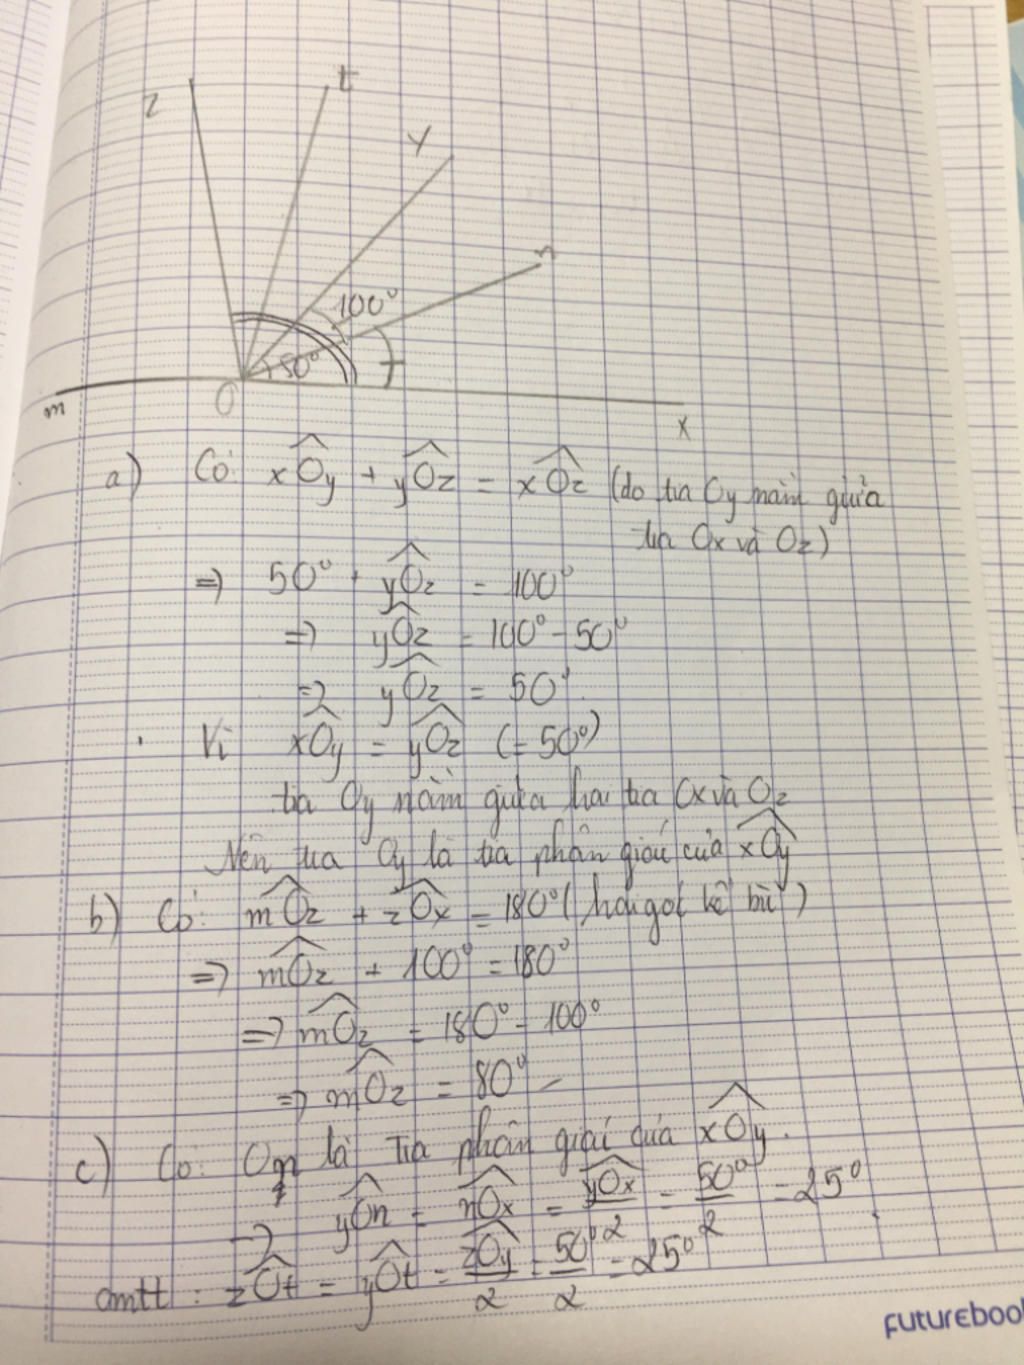 z
t
y
n
100°
50°
m
O
x
a) Có: xOy + yOz = xOz (do tia Oy nằm giữa
tia Ox và Oz)
=> 50° + yOz = 100°
=> yOz = 100° - 50°
=> yOz = 50°.
Vì xOy = yOz (= 50°)
tia Oy nằm giữa hai tia Ox và Oz
Nên tia Oy là tia phân giác của xOy
b) Có: mOz + zOx = 180° (hai góc kề bù)
=> mOz + 100° = 180°
=> mOz = 180° - 100°
=> mOz = 80°
c) Có: On là tia phân giác của xOy.
=> yOn = nOx = yOx/2 = 50°/2 = 25°
cmtt: zOt = yOt = zOy/2 = 50°/2 = 25°
FUTUREBOOK